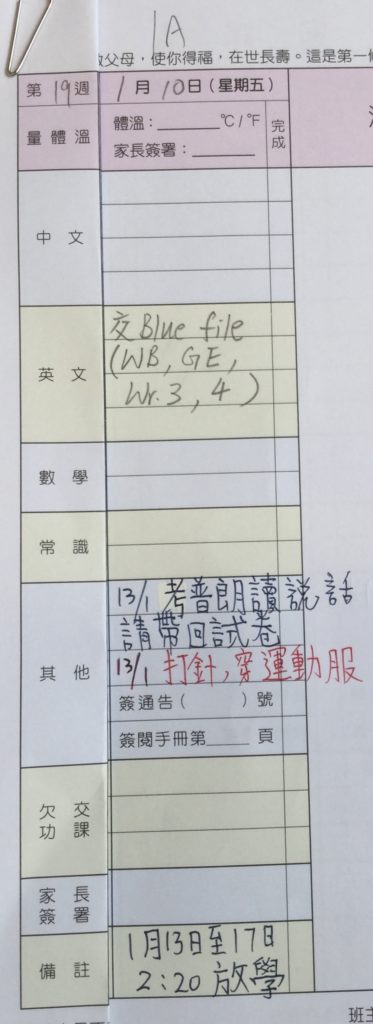 1A
父母，使你得福，在世長壽。這是第一
第19週 1月10日(星期五)
量體溫 體溫：______°C/°F 完成
家長簽署：______
中文
英文 交Blue file
(WB, GE,
Wr. 3, 4)
數學
常識
其他 13/1 考普朗讀說話
請帶回試卷
13/1 打針，穿運動服
簽通告( )號
簽閱手冊第____頁
欠交功課
家長簽署
備註 1月13日至17日
2:20 放學
班主